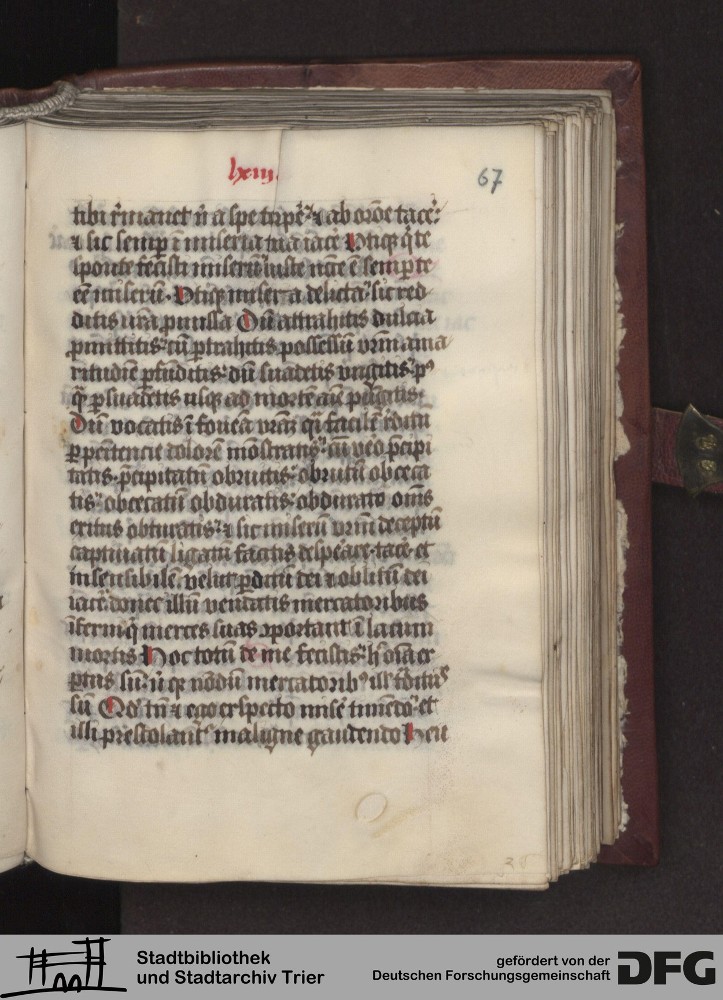 lxiij.
67
tibi r̄manet n̄ a spe torpe⁊ ⁊ ab or̄oe tace⁊
⁊ sic semp̱ ī miseria tua iace Vtiqꝫ q̇ te
sponte fecisti miserū iuste nc̄e ē semp̱ te
eē miserū. Vtiqꝫ misera delicta sic red
ditis vr̄a ꝓmissa Dū attrahitis dulcia
ꝓmittitis cū ꝑtrahitis possessū vr̄m ama
ritudīe ꝑfūditis dū suadetis vngitis pꝰ
q̄ ꝑsuadetis usqꝫ ad mortē aīe pūgitis
Dū vocatis ī foueā vr̄am q̄si facilē
ꝑ penitencie colorē mōstratis cū ṽo p̄cipi
tatis p̄cipitatū obruitis obrutū obceca
tis obcecatū obduratis obdurato om̄s
exitus obturatis ⁊ sic miserū vr̄m deceptū
captiuatū ligatū facitis despe̓are tace̓ et
insensibilē velut ꝑditū dei ⁊ oblitū dei
iace̓ donec illū vendatis mercatoribus
īferni q̄ merces suas ꝯportant ī lacum
mortis Hoc totū de me fecistis
ptus sū n̄ qꝫ nōdū mercatoribꝰ ill̓ t̓ditus
sū Qd̓ tn̄ ⁊ ego exspecto mis̓e timēdo et
illi prestolant᷑ maligne gaudendo Heu
Stadtbibliothek
und Stadtarchiv Trier
gefördert von der
Deutschen Forschungsgemeinschaft
DFG